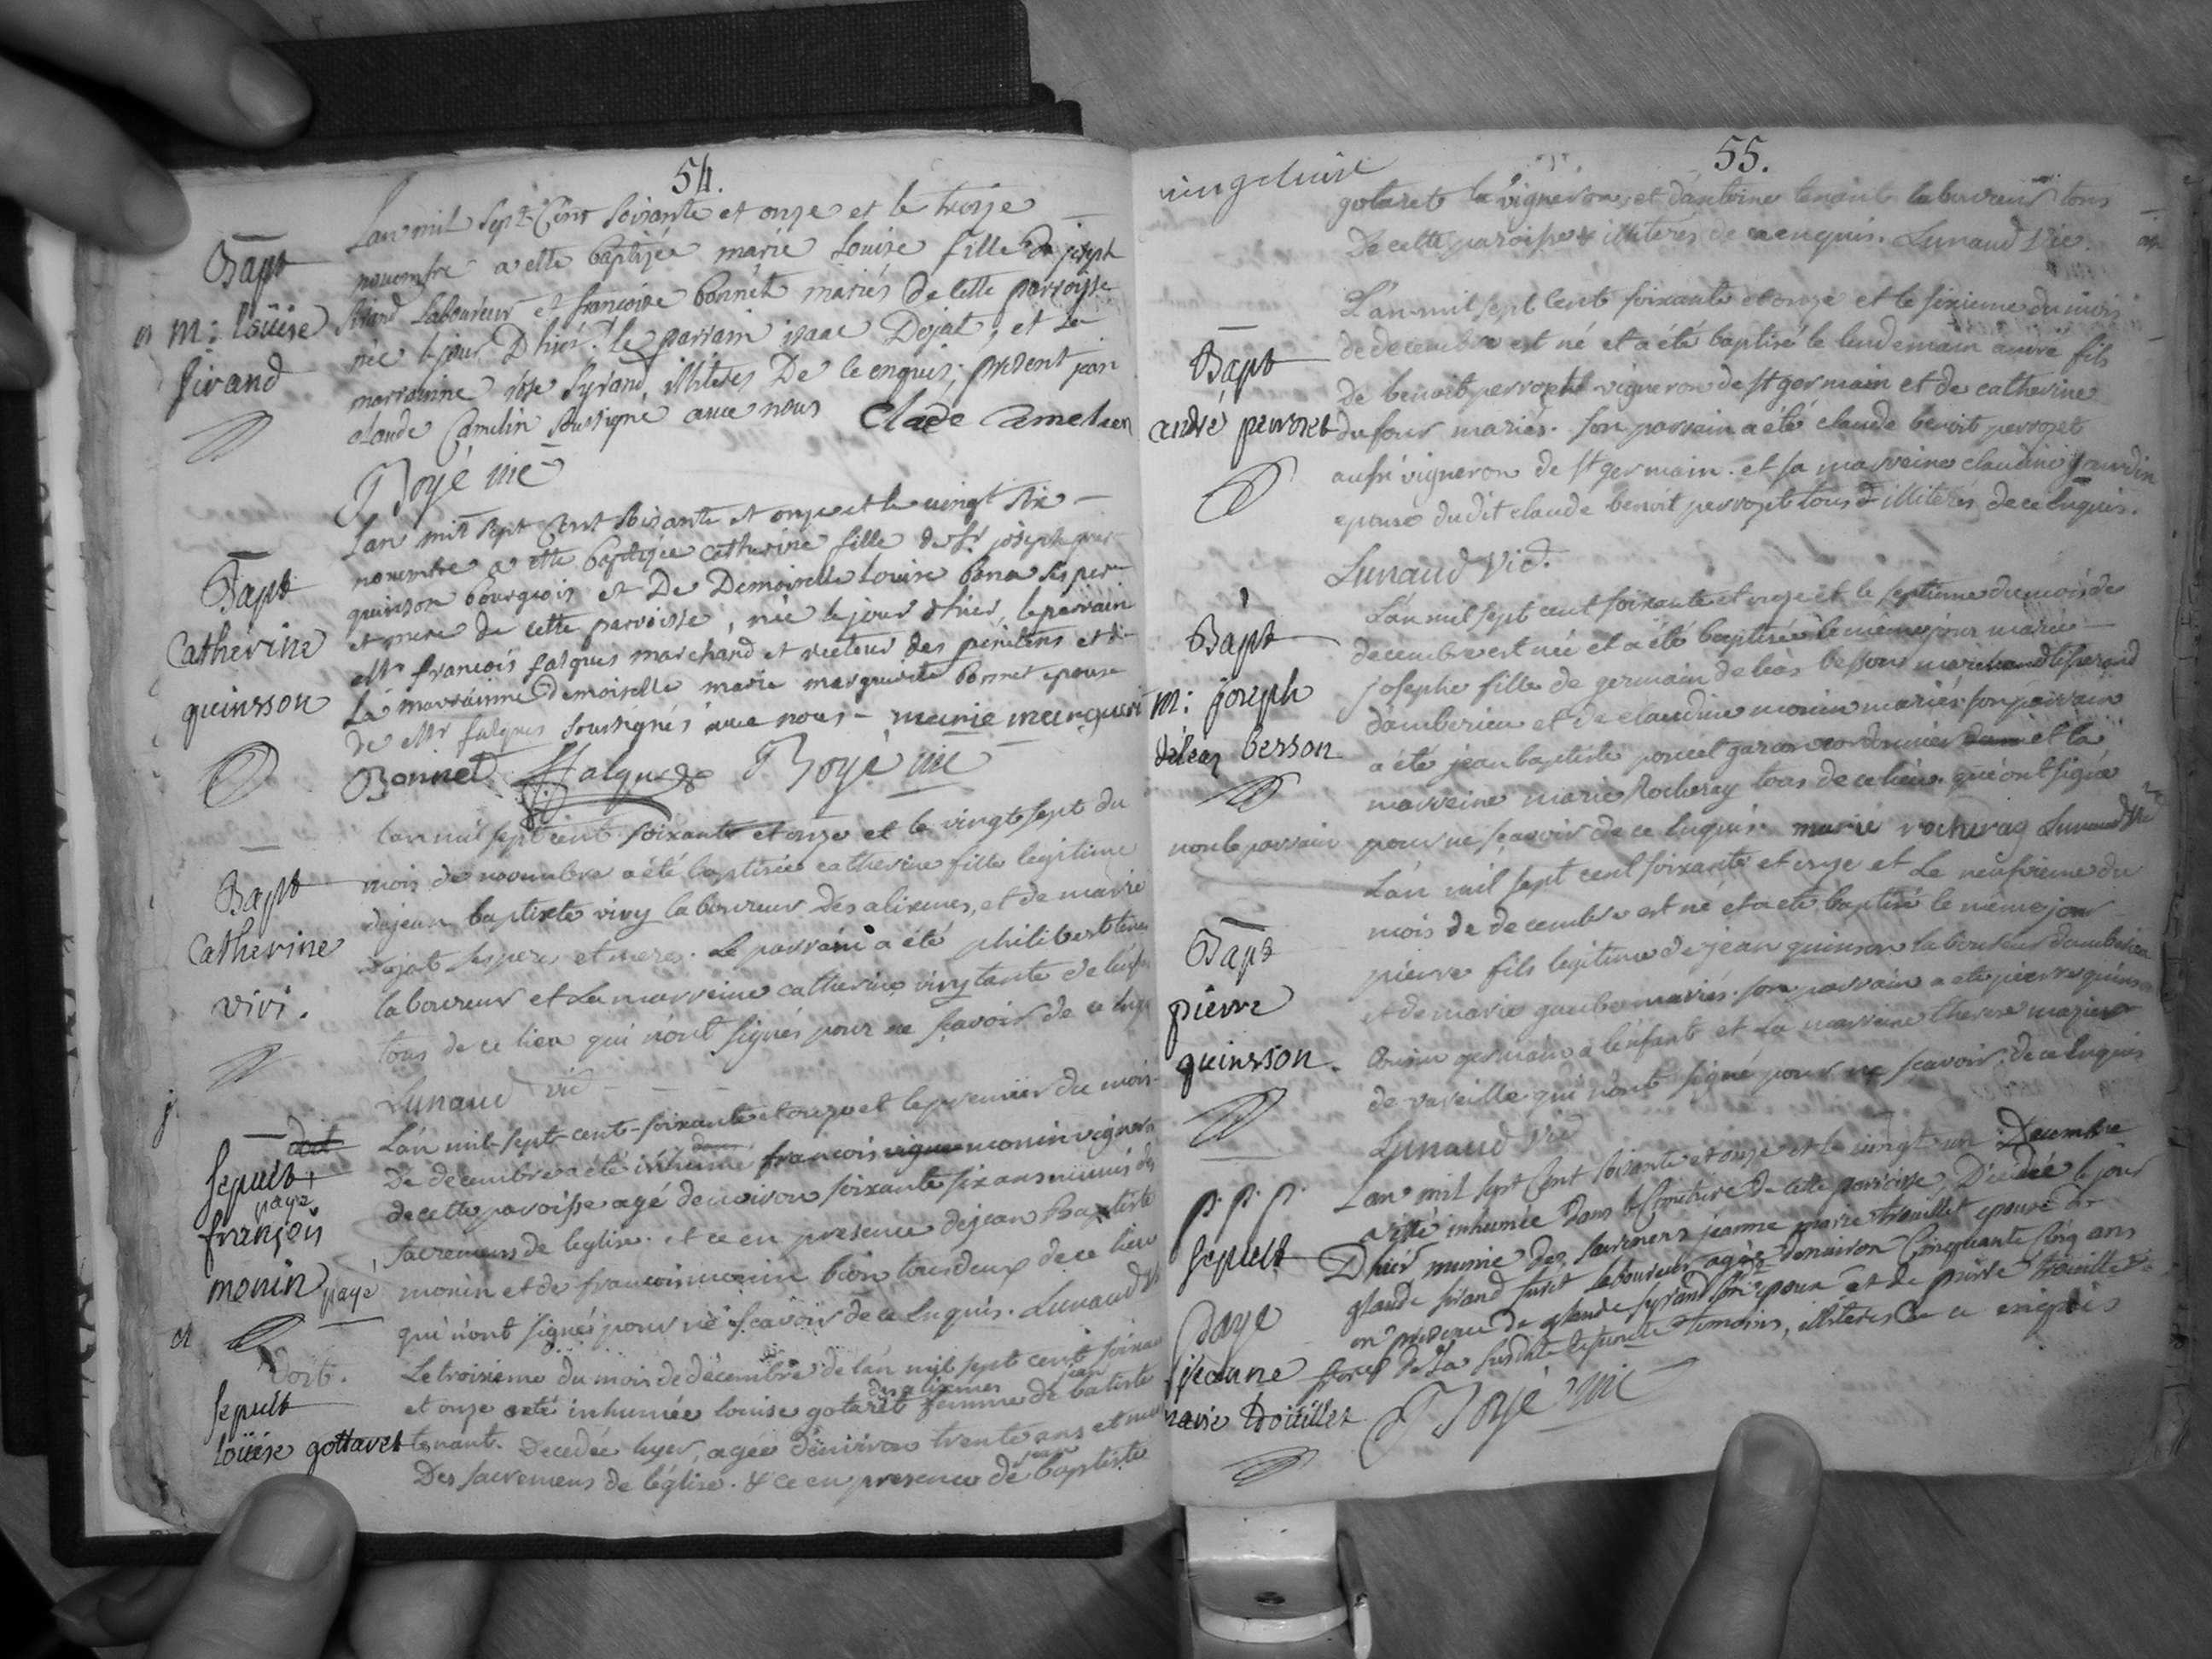 54.
Lan mil sept Cent soixante et onze et le treize
Bapt
novembre a etté baptizée marie Louise fille de joseph
m: loüise
sirand Laboureur et françoise bonnet mariés de Cette parroisse
sirand
née le jour D'hier. le parrain isaac Dejat, et la
marrainne rose syrand illiteres De ce enquis, présent jean
claude Camelin soussigné avec nous Clade Camelien
Royé vic
Lan mil sept Cent soixante et onze et le vingt six
Bapt
novembre a etté baptizée catherine fille de sr joseph
Catherine
quinson bourgeois et De Demoiselle Louise bona ses pere
quinsson
et mere de cette parroisse, née le jour d'hier, le parrain
Mr françois falques marchand et recteur des penitens et
La marrainne demoiselle marie marguerite bonnet epouse
de Mr falques soussignés avec nous - marie margueri
Bonnet Falques Royé vic
lan mil sept cent soixante et onze et le vingt sept du
Bapt
mois de novembre a été baptisée catherine fille legitime
Catherine
de jean baptiste vivy laboureur des alixmes, et de marie
vivi.
dejat ses peres et meres. Le parrain a été philibert tenan
laboureur et La marreine catherine vivy tante de
tous de ce lieu qui n'ont signés pour ne sçavoir de ce
Lunaud vic
L'an mil-sept-cent-soixante et onze et le premier du mois
Sepult
De decembre a été inhumé françois monin vigneron
paye
de cette paroisse agé denviron soixante six ans munis des
françois
sacremens de leglise. et ce en presence de jean Baptiste
monin paye
monin et de francois monin bion tous deux de ce lieu
qui n'ont signés pour ne sçavoir de ce Enquis. Lunaud
Le troisieme du mois de décembre de l'an mil sept cent soixan
Sepult
et onze a été inhumée louise gotaret des alixmes femme de jean batiste
loüise gottaret
tenant. Decedée hyer, agée denviron trente ans et
Des sacremens de l'église. & ce en presence de jean baptiste
55.
gotaret vigneron, et d'antoine tenant laboureur tous
De cette paroisse & illiteres de ce enquis. Lunaud Vic.
L'an mil sept Cent soixante et onze et le sixieme du mois
Bapt
de decembre est né et a été baptisé le lendemain andré fils
de benoit perrozet vigneron de st germain et de catherine
andré perrozet
dufour mariés. son parrain a été claude benoit perrozet
aussi vigneron de st germain. et sa marreine claudine jourdin
epouse dudit claude benoit perrozet tous d illiteres de ce Enquis.
Lunaud Vic.
L'an mil sept cent soixante et onze et le septieme du mois de
Bapt
decembre est née et a été baptisée le meme jour marie
m: joseph
josephe fille de germain deleas besson
déleaz besson
d'amberieu et de claudine monin mariés. son parrain
a été jean baptiste poncet garcon cordonnier et la
marreine marie Rocheray tous de ce lieu. qui ont signé
non le parrain pour ne sçavoir de ce Enquis. marie rocheray Lunaud Vic
L'an mil sept cent soixante et onze et Le neufvieme du
Bapt
mois de decembre est né et a été baptisé le même jour
pierre
pierre fils legitime de jean quinson laboureur d'amberieu
quinsson.
et de marie gaube mariés. son parrain a été pierre quinson
Cousin germain a l'enfant et La marreine therese
de vareille qui n'ont signé pour ne sçavoir. de ce Enquis
Lunaud Vic
Lan mil sept Cent soixante et onze et le vingt un Decembre
p. p. p.
a etté inhumée dans le Cimetiere de cette parroisse Décédée le jour
Sepult
Dhier munie des sacremens jeanne marie trouillet epouse de
glaude sirand furet laboureur agée denviron Cinquante Cinq ans
paye
en présence de glaude syrand son epoux et de pierre trouillet
jeanne
frere de La susdite defuncte temoins, illiteres de ce enquis
marie trouillet
Royé vic